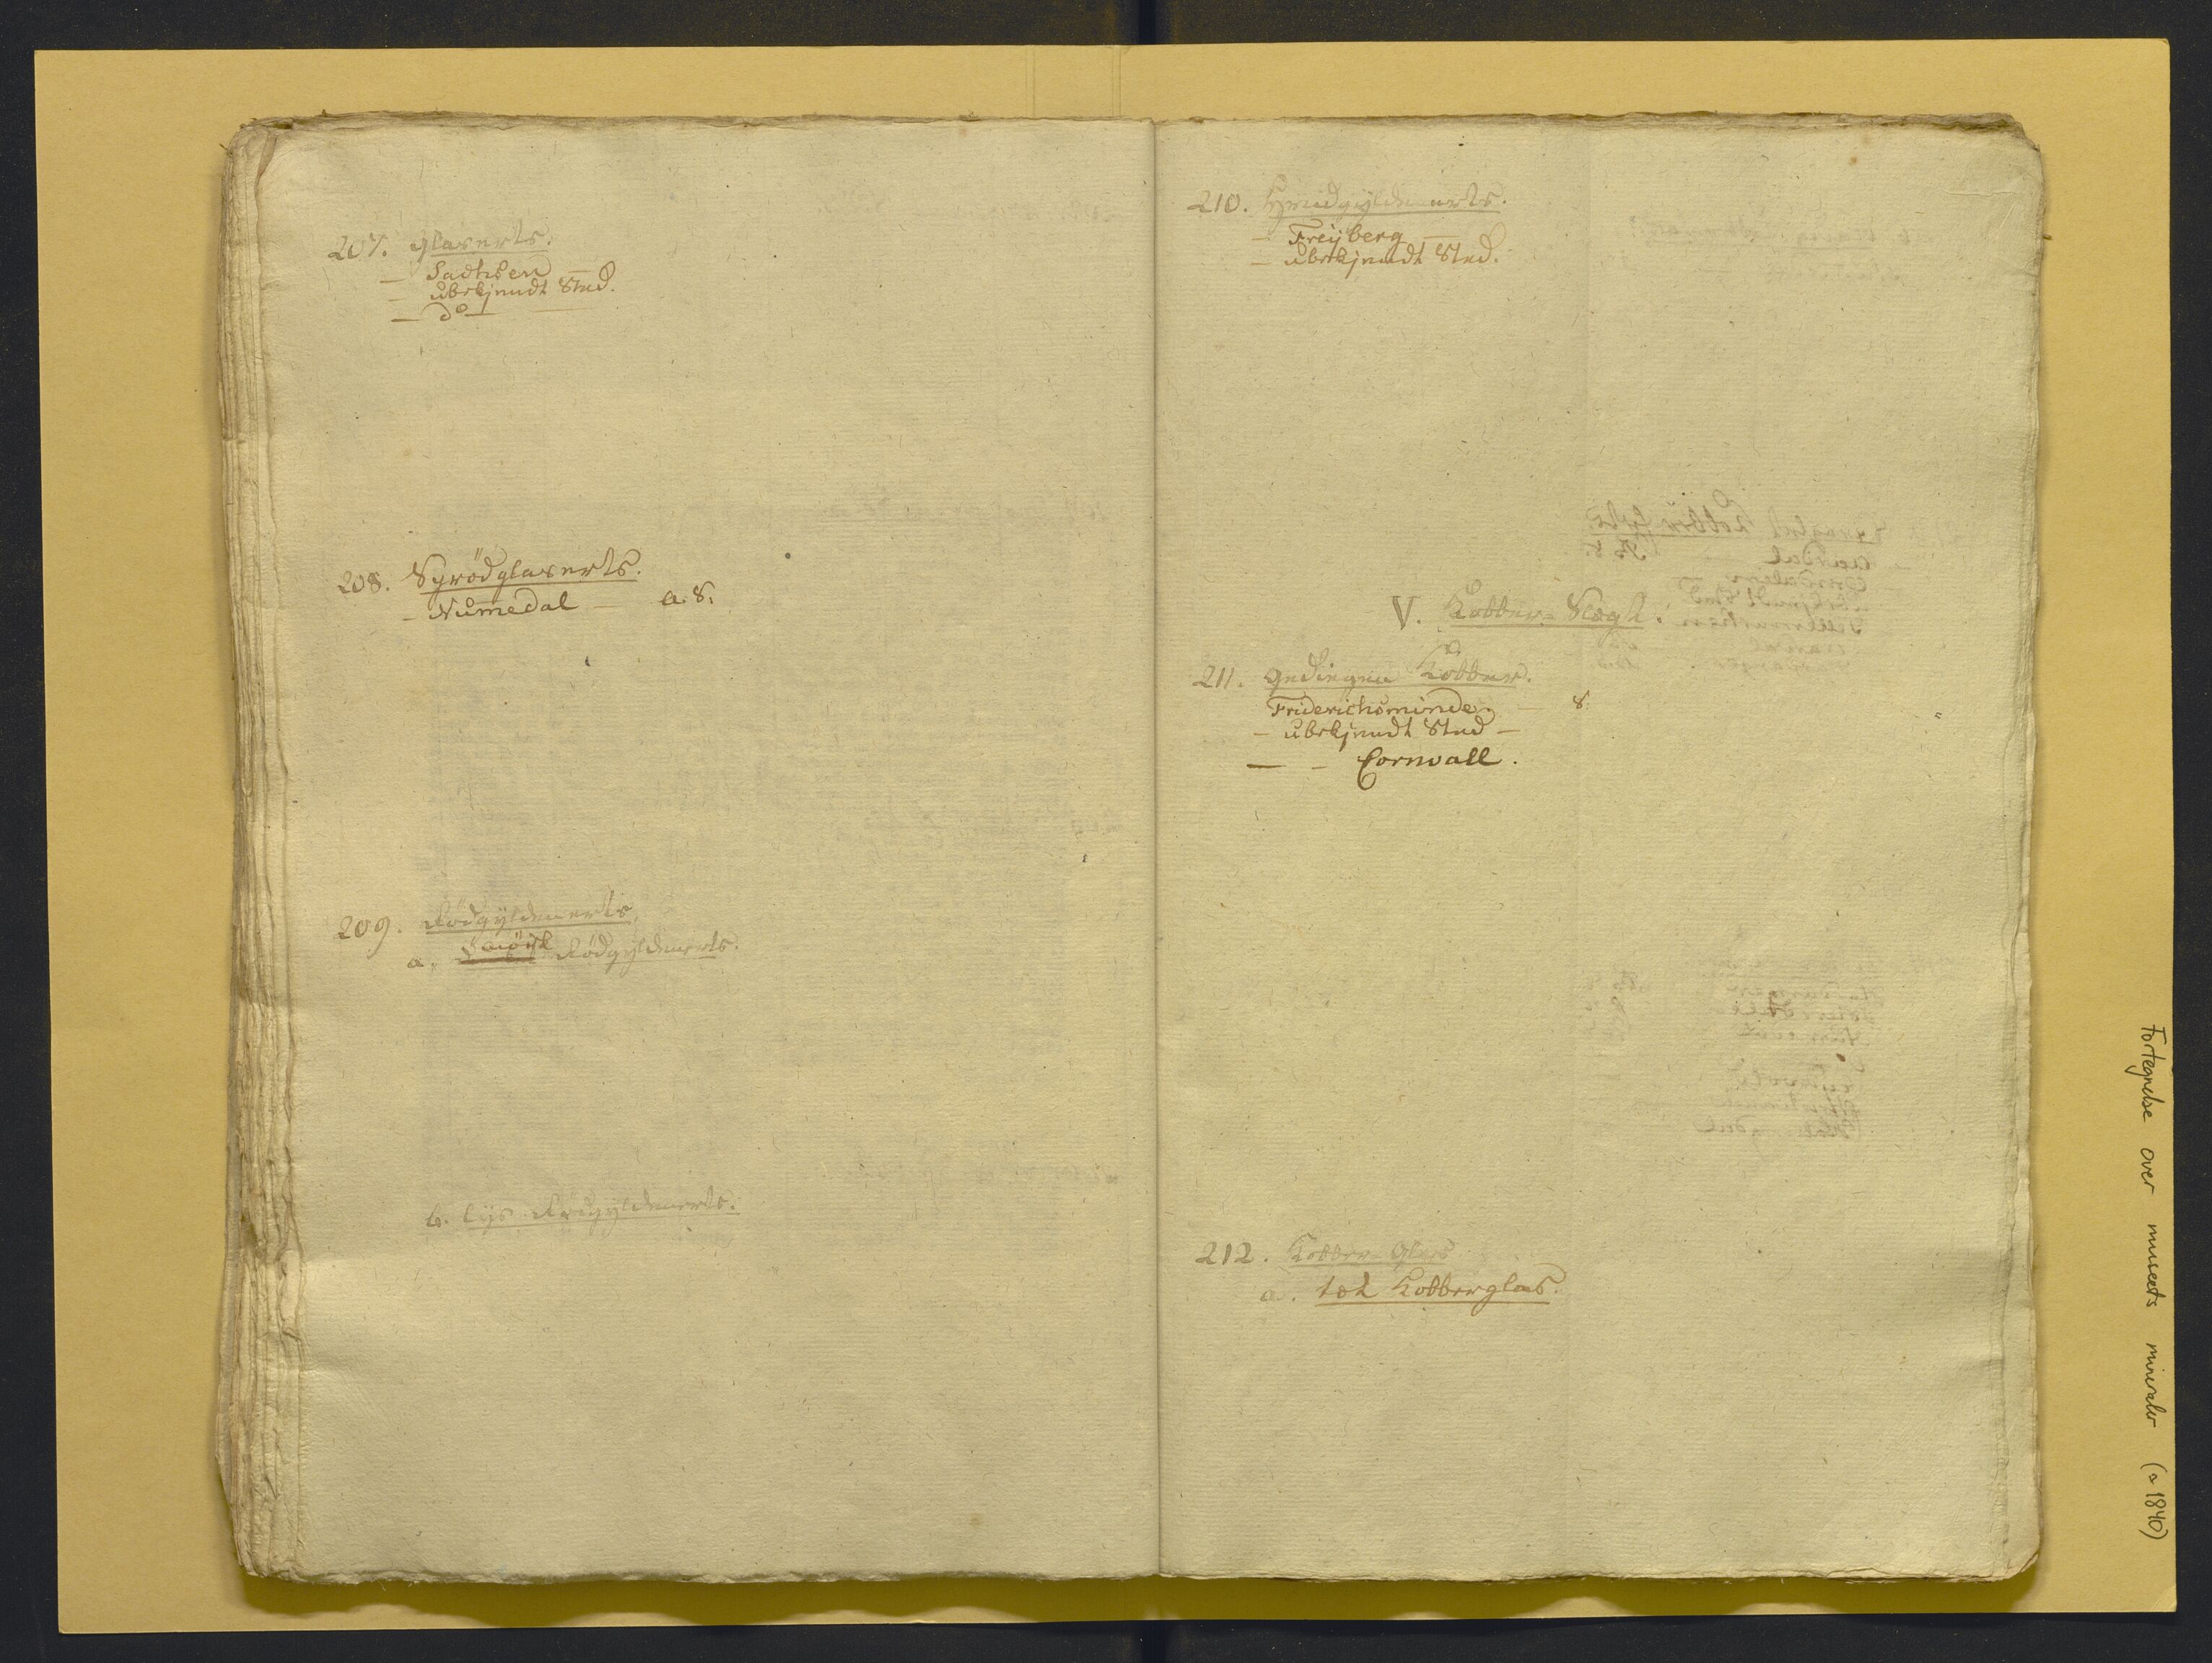 207. Glaserts.
— Sachsen —
— übekjendt Sted.
— do —
208. Sprödglaserts.
— Numedal — a. 8.
209. Rödgyldenerts.
a. Rödgyldenerts.
b. Lys Rödgyldenerts.
210. Hvidgyldenerts.
— Freyberg —
— ubekjendt Sted.
V. Kobber-Slægt.
211. Gediegen Kobber.
Friderichsminde. — 8.
— ubekjendt Sted —
— — Cornwall.
212. Kobber-Glas
a. tæt Kobberglas.
Fortegnelse over museets mineraler (ca 1840)